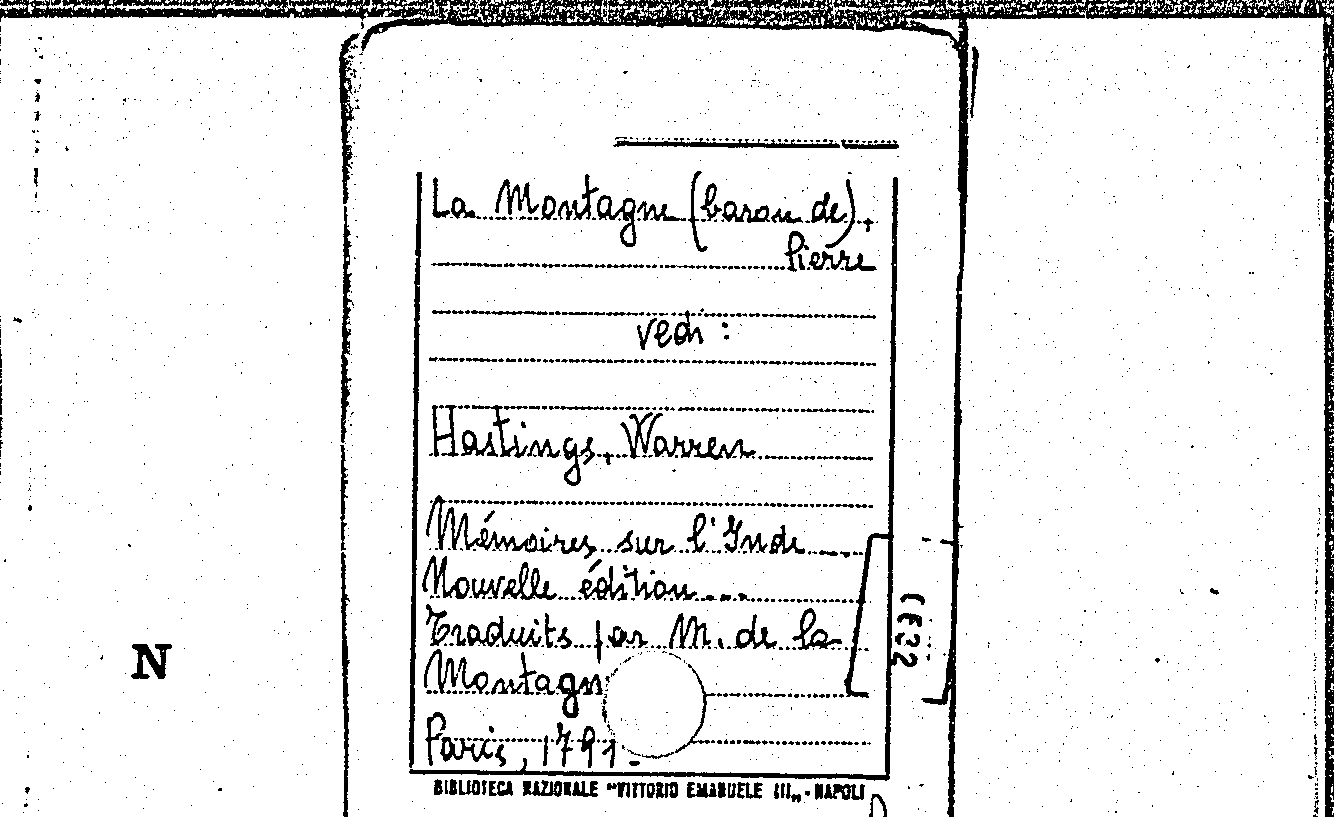 La Montagne (baron de),
Pierre
vedi :
Hastings, Warren
Mémoires sur l'Inde ....
Nouvelle édition ...
Traduits par M. de la
Montagn
Paris, 1791.
N
BIBLIOTECA NAZIONALE "VITTORIO EMANUELE III„ - NAPOLI